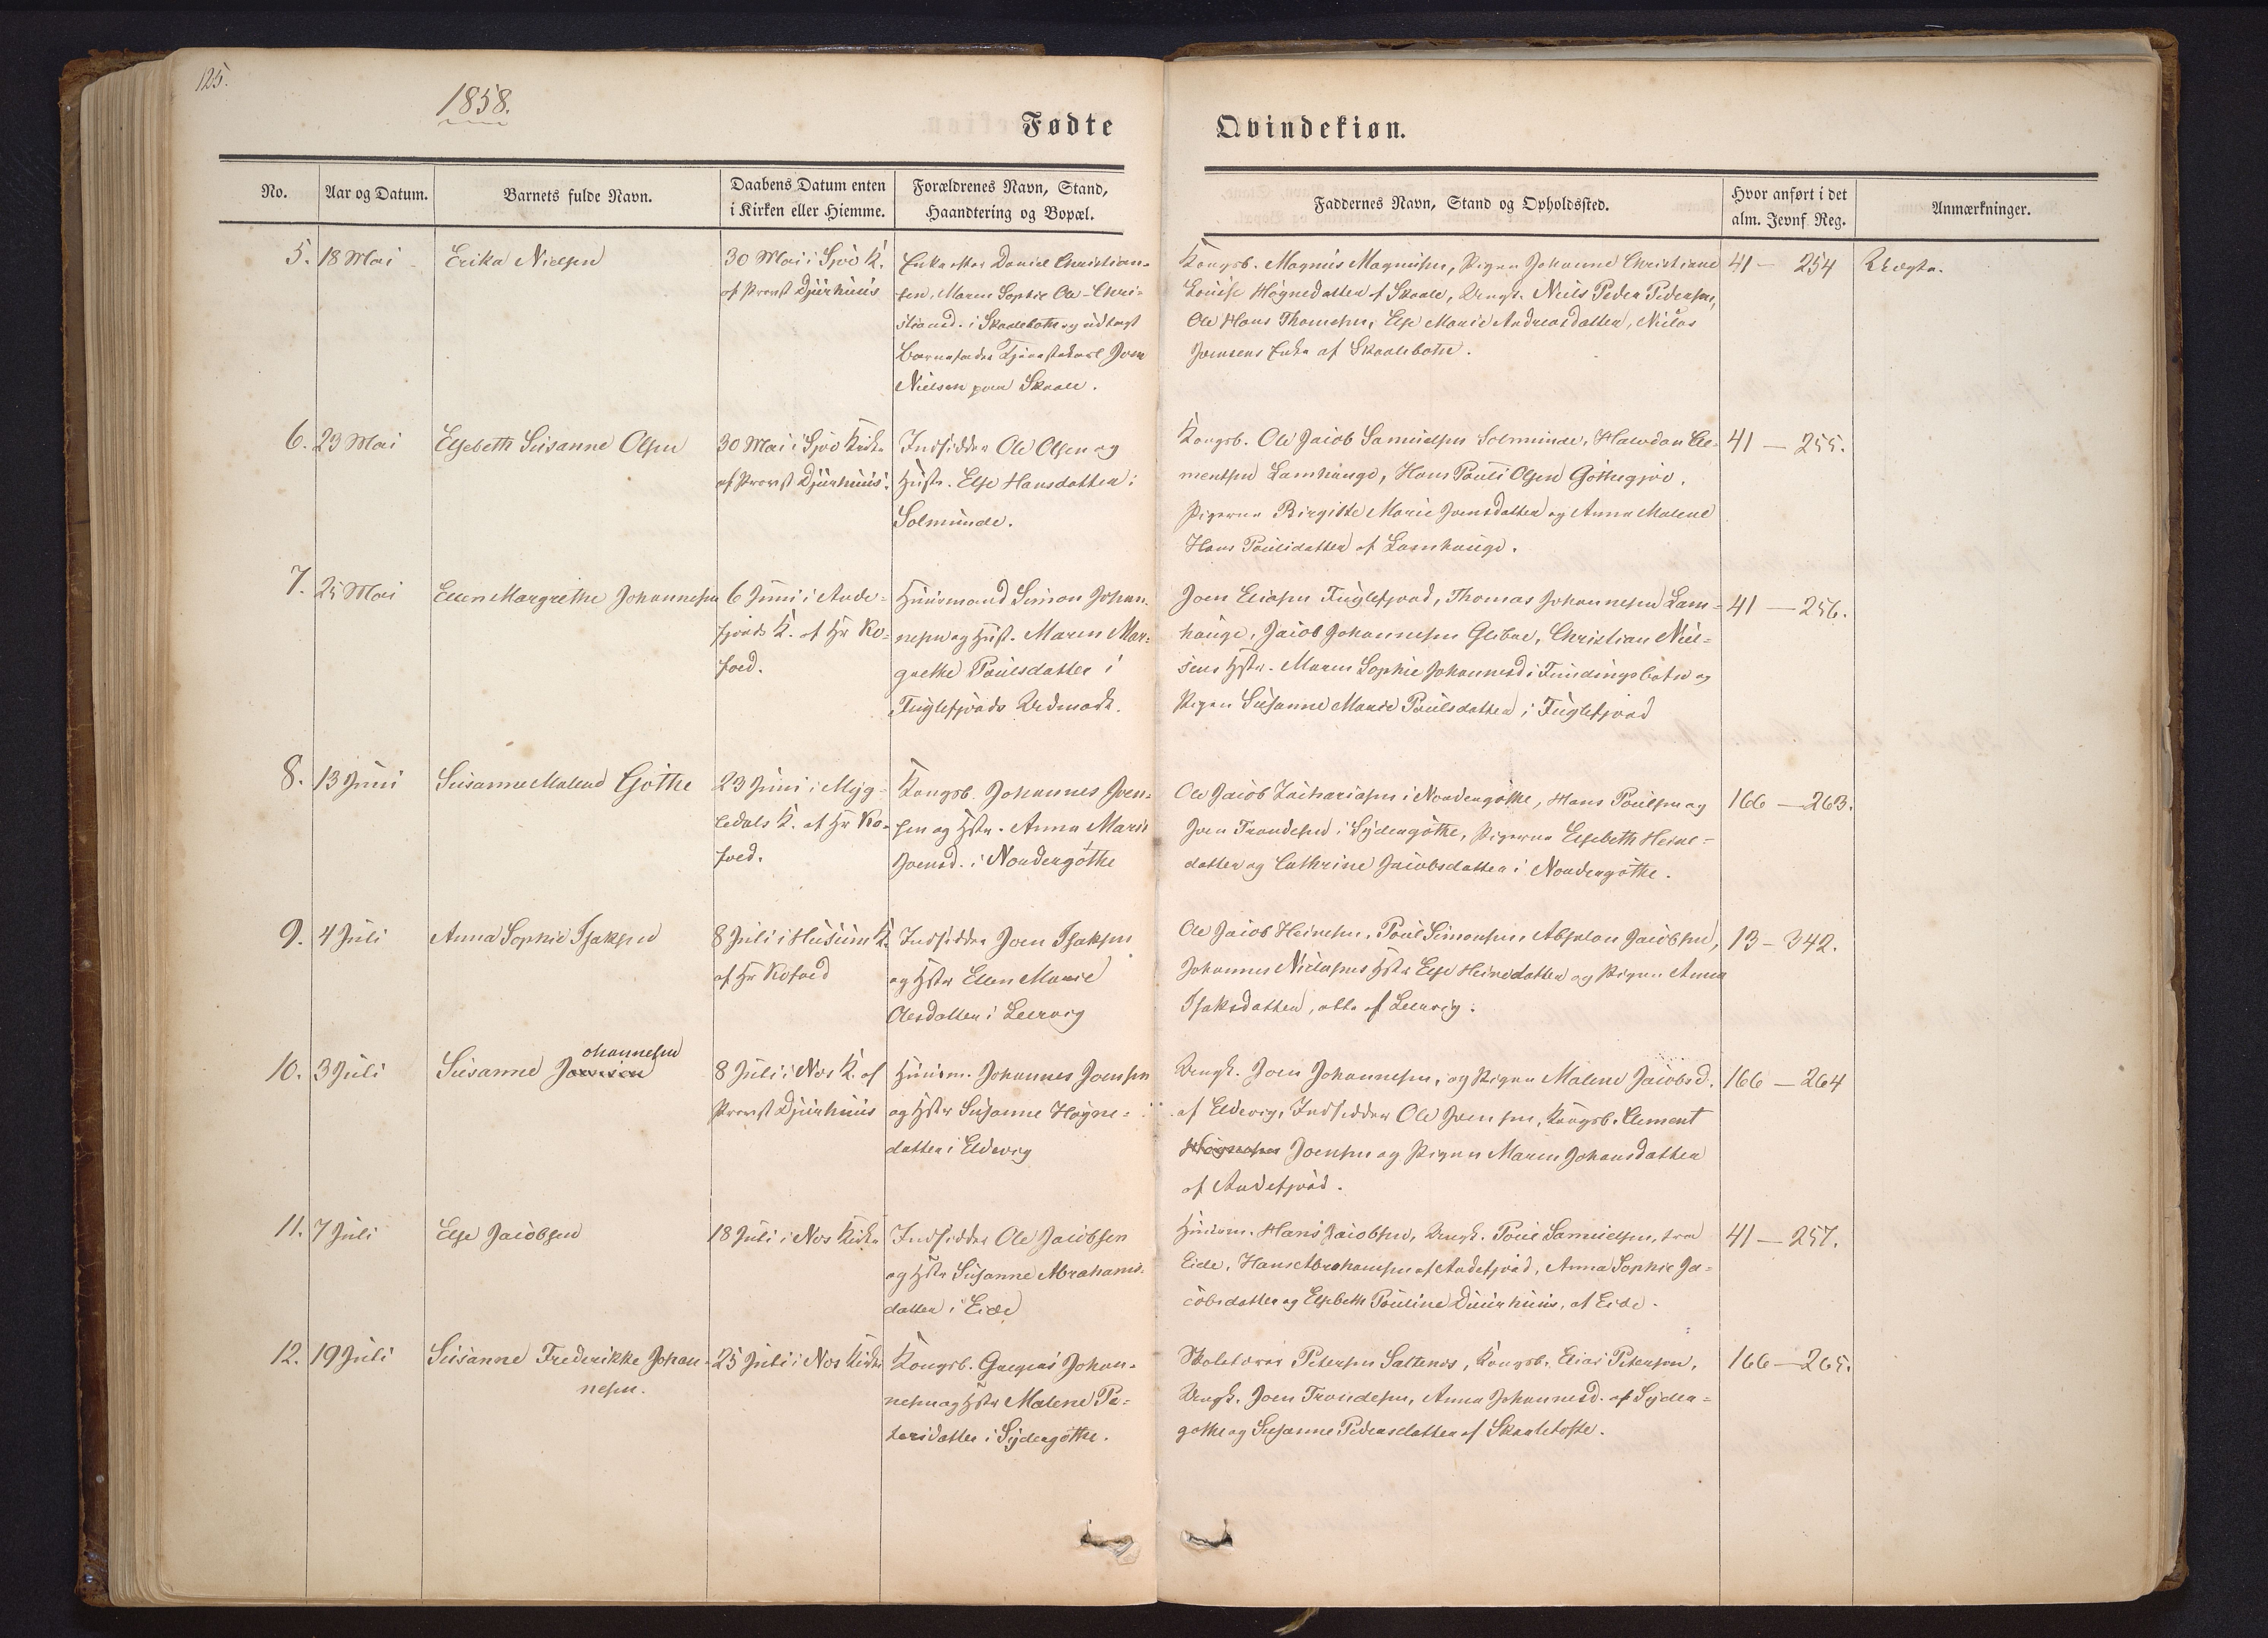 125.
1858.
Fødte
Qvindekiøn.
No.
Aar og Datum.
Barnets fulde Navn.
Daabens Datum enten
i Kirken eller Hiemme.
Forældrenes Navn, Stand,
Haandtering og Bopæl.
Faddernes Navn, Stand og Opholdssted.
Hvor anført i det
alm. Jevnf. Reg.
Anmærkninger.
5.
18 Mai
Erika Nielsen
30 Mai i Sjov K.
af Provst Djurhuus
Enke efter Daniel Christian-
sen, Maren Sophie Ole-Chri-
stiansd. i Skaalebotn og udlagt
Barnefader Tjenestekarl Joen
Nielsen paa Skaale.
Kongsb. Magnus Magnusen, Pigen Johanne Christiane
Louise Høgnedatter af Skaale, Ungk. Niels Peder Pedersen,
Ole Hans Thomesen, Else Marie Andreasdatter, Niclas
Joensens Enke af Skaalebotn.
41 — 254
Uægte.
6.
23 Mai
Elsebeth Susanne Olsen
30 Mai i Sjov Kirke
af Provst Djurhuus.
Indsidder Ole Olsen og
Hustr. Else Hansdatter i
Solmunde.
Kongsb. Ole Jacob Samuelsen Solmunde, Halvdan Cle-
mentsen Lamhauge, Hans Pauli Olsen Gøthegjov.
Pigerne Birgitte Marie Joensdatter og Anna Malene
Hans Paulidatter af Lamhauge.
41 — 255.
7.
25 Mai
Ellen Margrethe Johannesen
6 Juni i Ande-
fjords K. af Hr Ko-
foed.
Huusmand Simon Johan-
nesen og Hust. Maren Mar-
grethe Poulsdatter i
Fuglefjords Udmark.
Joen Eliasen Fuglefjord, Thomas Johannesen Lam-
hauge, Jacob Johannesen Glibre, Christian Niel-
sens Hstr. Maren Sophie Johannesd i Fundingsbotn og
Pigen Susanne Marie Poulsdatter i Fuglefjord
41 — 256.
8.
13 Juni
Susanne Malene Gøthe
23 Juni i Myg-
ledals K. af Hr Ko-
foed.
Kongsb. Johannes Joen-
sen og Hstr. Anna Marie
Joensd. i Nordergøthe
Ole Jacob Zachariasen i Nordergøthe, Hans Poulsen og
Joen Trondesen i Sydergøthe, Pigerne Elsebeth Heine-
datter og Cathrine Jacobsdatter i Nordergøthe.
166 — 263.
9.
4 Juli
Anna Sophie Isaksen
8 Juli i Husum K.
af Hr Kofoed
Indsidder Joen Isaksen
og Hstr Ellen Marie
Olesdatter i Leervig
Ole Jacob Heinesen, Poul Simonsen, Absalon Jacobsen,
Johannes Niclasens Hstr Else Heinedatter og Pigen Anna
Isaksdatter, alle af Leervig.
13 — 342.
10.
3 Juli
ohannesen
Susanne Joensen
8 Juli i Nes K. af
Provst Djurhuus
Huusm. Johannes Joensen
og Hstr Susanne Høgne-
datter i Eldevig
Ungk. Joen Johannesen, og Pigen Malene Jacobsd.
af Eldevig, Indsidder Ole Joensen, Kongsb. Clement
Høgnesen Joensen og Pigen Maren Johansdatter
af Andefjord.
166 — 264
11.
7 Juli
Else Jacobsen
18 Juli i Nes Kirke
Indsidder Ole Jacobsen
og Hstr Susanne Abrahams-
datter i Eide
Huusm. Hans Jacobsen, Ungk. Poul Samuelsen, fra
Eide, Hans Abrahamsen af Andefjord, Anna Sophie Ja-
cobsdatter og Elsebeth Pouline Djurhuus, af Eide.
41 — 257.
12.
19 Juli
Susanne Frederikke Johan-
nesen.
25 Juli i Nes Kirke
Kongsb. Gregus Johan-
nesen og Hstr Malene Pe-
tersdatter i Sydergøthe.
Skolelærer Petersen Saltenes, Kongsb. Elias Petersen,
Ungk. Joen Trondesen, Anna Johannesd. af Syder-
gøthe og Susanne Pedersdatter af Skaaletofte.
166 — 265.